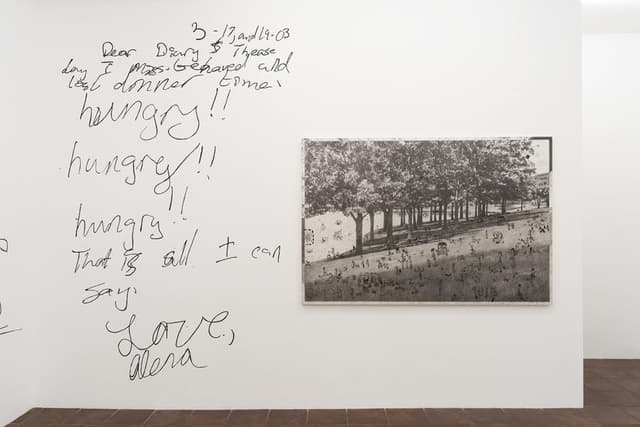 3-17, and 19-03
Dear Diary Thease
day I miss-behaved and
lost donner time.
hungry!!
hungry!!
hungry!!
That is all I can
say.
Love,
alera